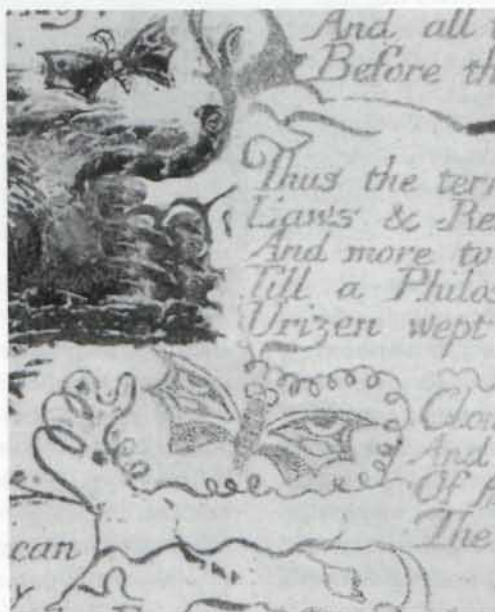 And all
Before th
Thus the terr
Laws & Re
And more to
Till a Philo
Urizen wept
Clou
And
Of
The
can
y